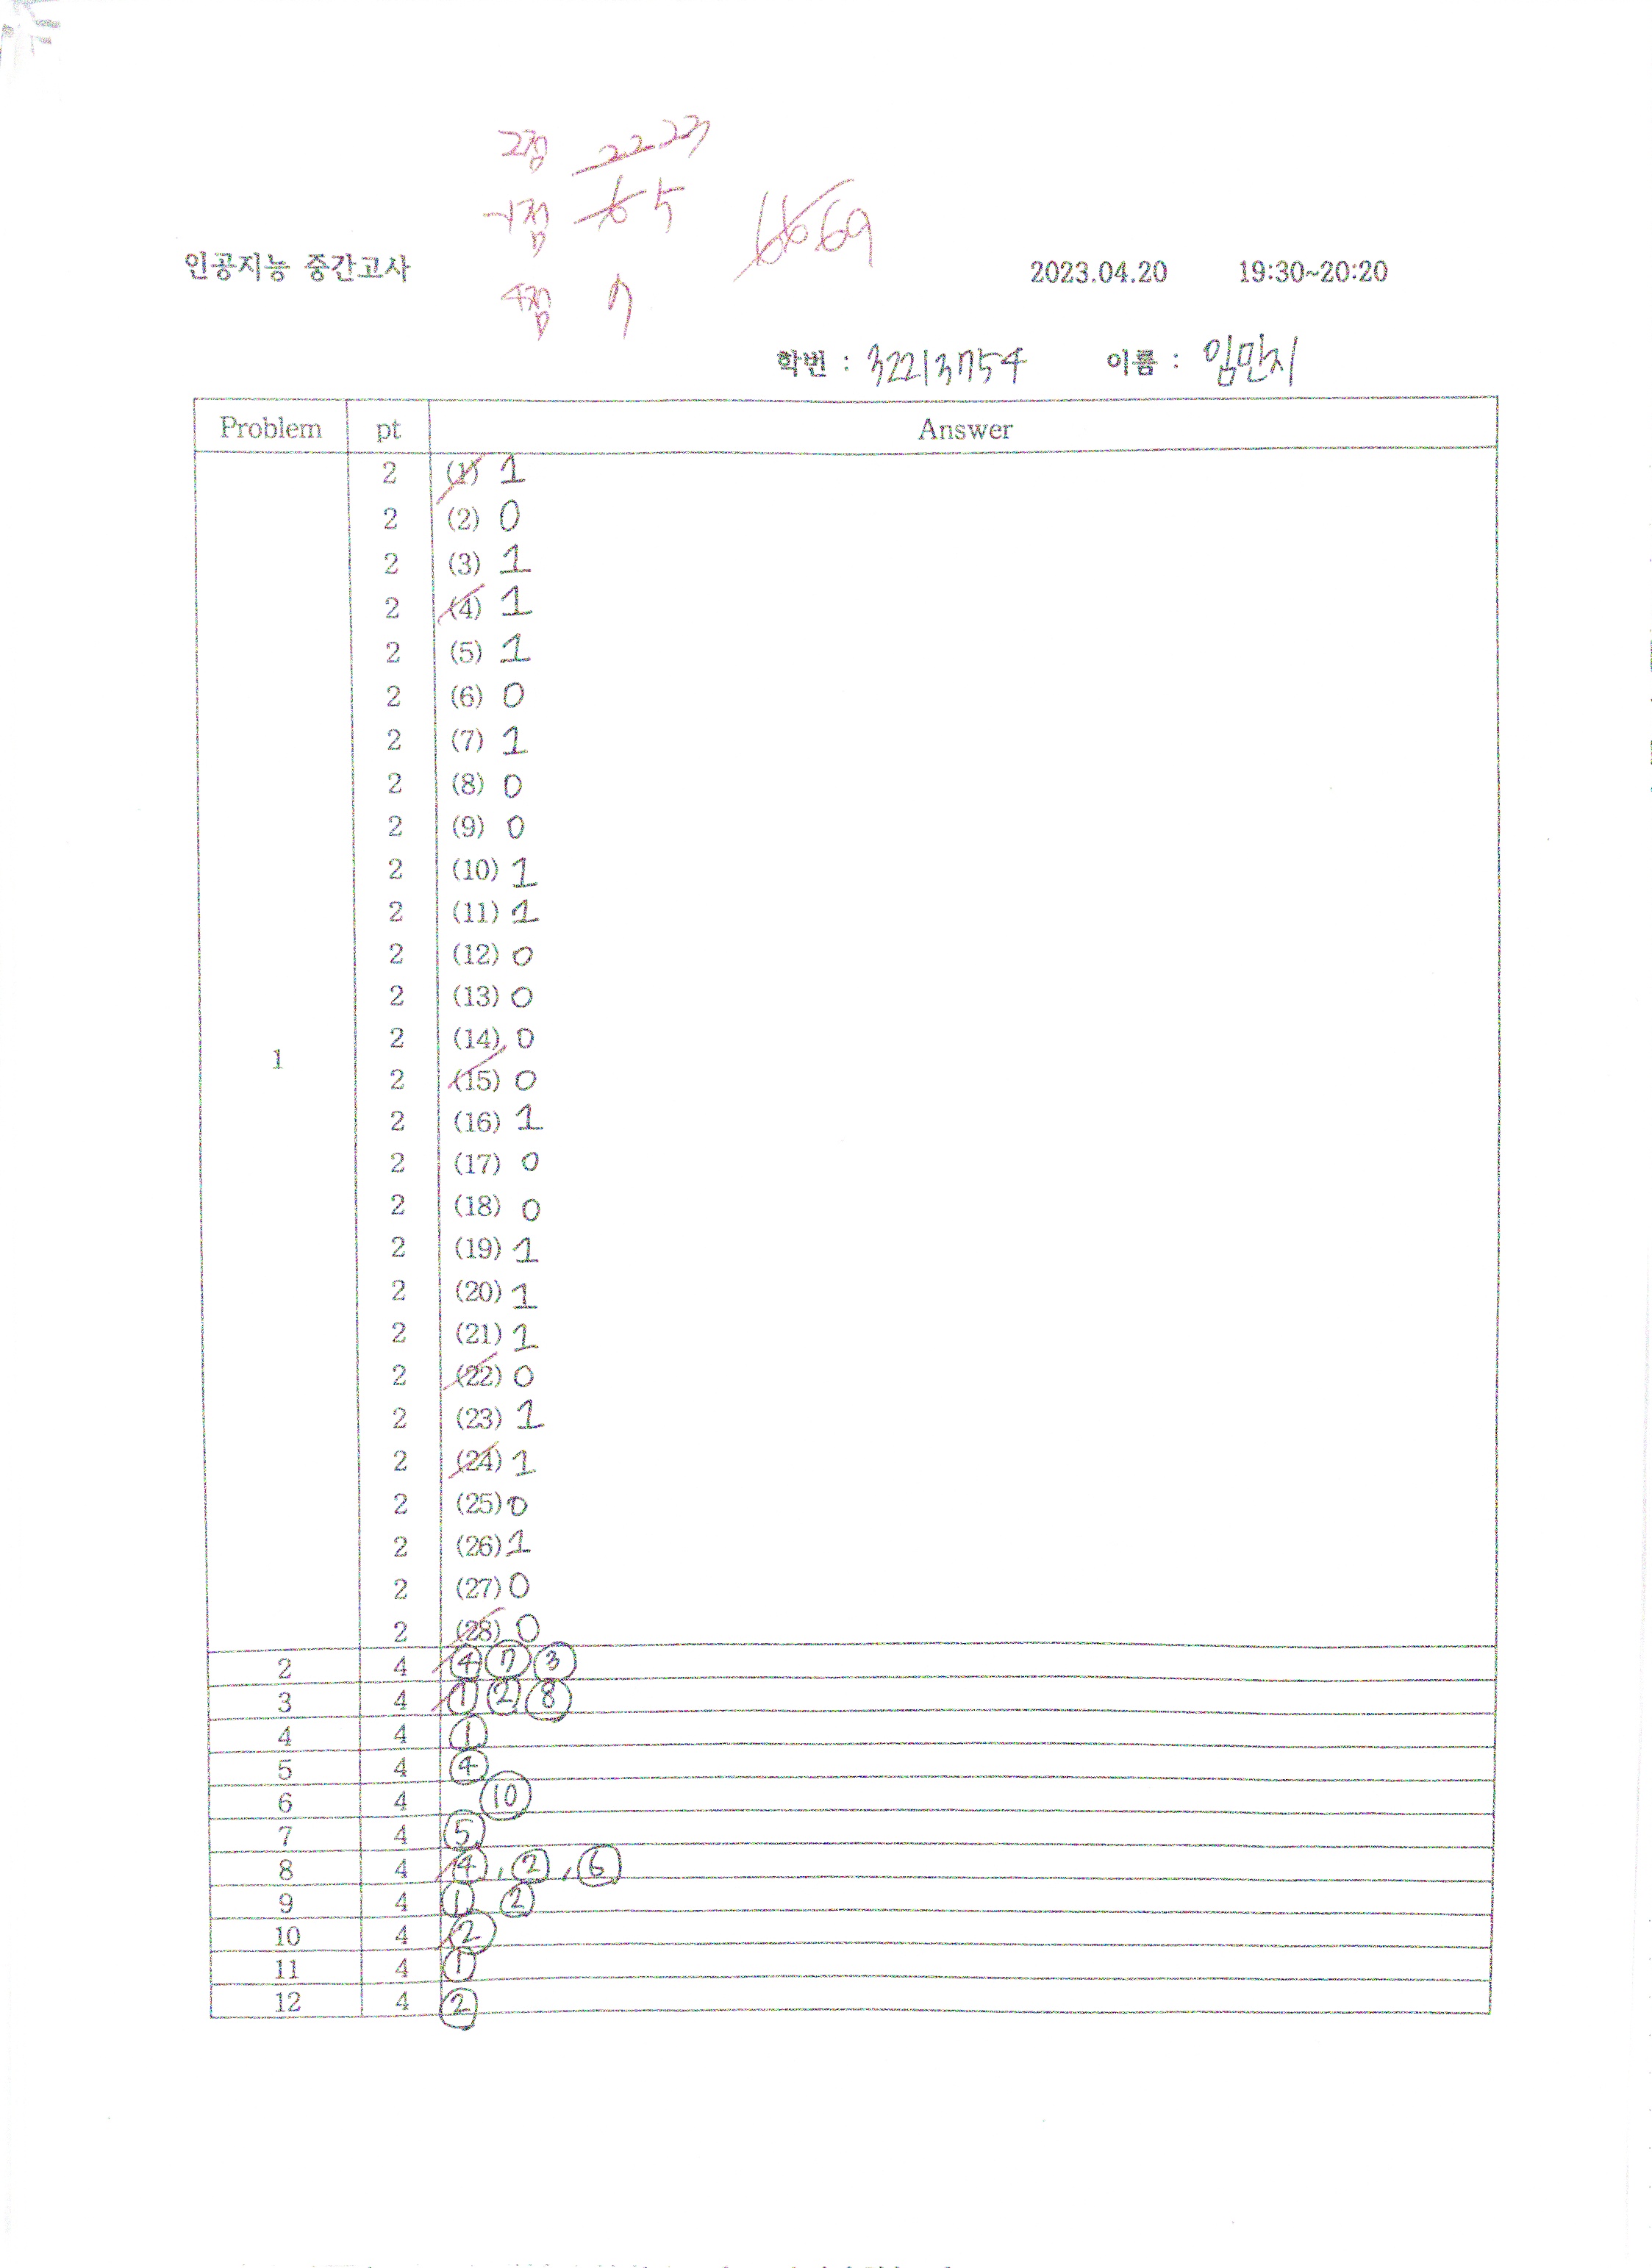 2점 22 23
-1점 6 5
66 69
인공지능 중간고사 2023.04.20 19:30~20:20
4점 7
학번 : 32213754 이름 : 임민지
Problem pt Answer
2 (1) 1
2 (2) 0
2 (3) 1
2 (4) 1
2 (5) 1
2 (6) 0
2 (7) 1
2 (8) 0
2 (9) 0
2 (10) 1
2 (11) 1
2 (12) 0
2 (13) 0
2 (14) 0
1
2 (15) 0
2 (16) 1
2 (17) 0
2 (18) 0
2 (19) 1
2 (20) 1
2 (21) 1
2 (22) 0
2 (23) 1
2 (24) 1
2 (25) 0
2 (26) 1
2 (27) 0
2 (28) 0
2 4 ④ ⑦ ③
3 4 ① ② ⑧
4 4 ①
5 4 ④
6 4 ⑩
7 4 ⑤
8 4 ④, ②, ⑥
9 4 ① ②
10 4 ②
11 4 ①
12 4 ②